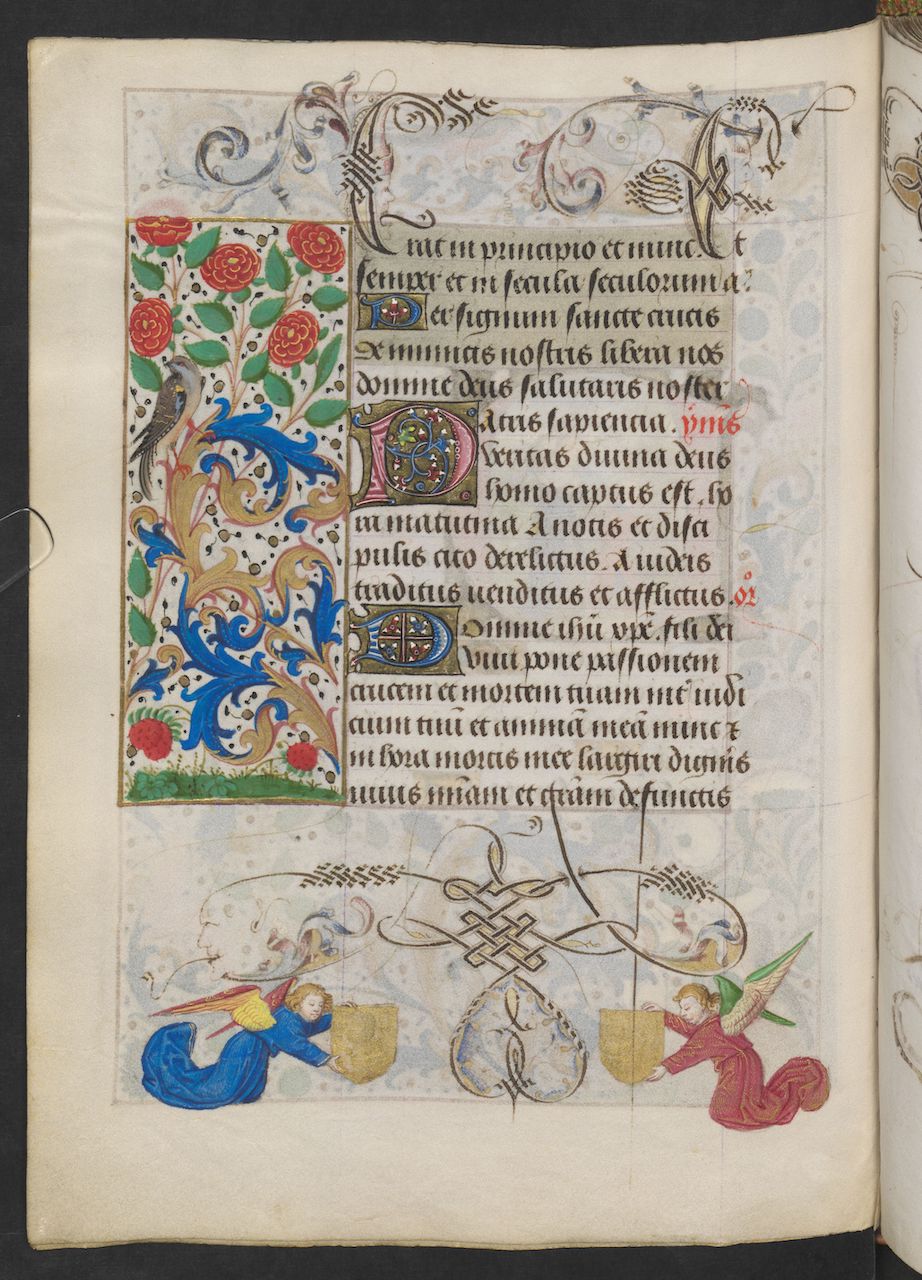 Erat in principio et nunc. Et
semper et in secula seculorum a.
Per signum sancte crucis
de inimicis nostris libera nos
domine deus salutaris noster
Patris sapiencia. ymnus
Veritas divina deus
homo captus est. ho
ra matutina A notis et disci
pulis cito derelictus. A iudeis
traditus venditus et afflictus. or̄
Domine ihū xpē. fili dei
vivi pone passionem
crucem et mortem tuam int̄ iudi
cium tuū et animā meā nunc ⁊
in hora mortis mee largiri digne
viuis m̄iam et gr̄am defunctis